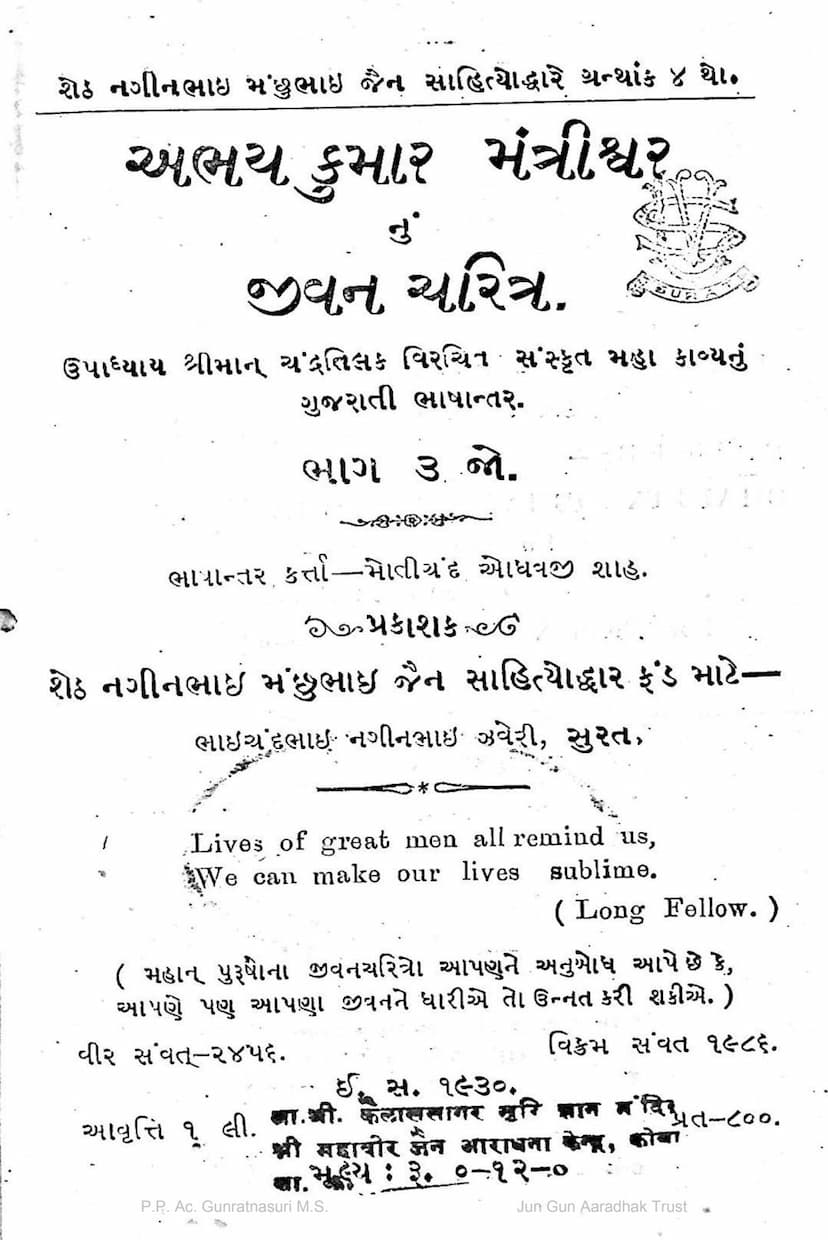 શેઠ નગીનભાઇ મંછુભાઇ જૈન સાહિત્યોદ્ધારે ગ્રન્થાંક ૪ થો.
અભય કુમાર મંત્રીશ્વર
નું
જીવન ચરિત્ર.
SURAT
ઉપાધ્યાય શ્રીમાન્ ચંદ્રતિલક વિરચિત સંસ્કૃત મહા કાવ્યનું
ગુજરાતી ભાષાન્તર.
ભાગ ૩ જો.
ભાષાન્તર કર્ત્તા—મોતીચંદ ઓધવજી શાહ.
પ્રકાશક
શેઠ નગીનભાઇ મંછુભાઇ જૈન સાહિત્યોદ્ધાર ફંડ માટે—
ભાઇચંદભાઇ નગીનભાઇ ઝવેરી, સુરત,
Lives of great men all remind us,
We can make our lives sublime.
( Long Fellow. )
( મહાન્ પુરૂષોના જીવનચરિત્રો આપણને અનુબોધ આપે છે કે,
આપણે પણ આપણા જીવનને ધારીએ તો ઉન્નત કરી શકીએ. )
વીર સંવત્-૨૪૫૬. વિક્રમ સંવત ૧૯૮૬.
ઈ. સ. ૧૯૩૦.
આવૃત્તિ ૧ લી. પ્રત-૮૦૦.
आ.श्री. कैलाससागर सूरि ज्ञान मंदिर
श्री महावीर जैन आराधना केन्द्र, कोबा
મૂલ્ય : રૂ. ૦-૧૨-૦
P.P. Ac. Gunratnasuri M.S. Jun Gun Aaradhak Trust